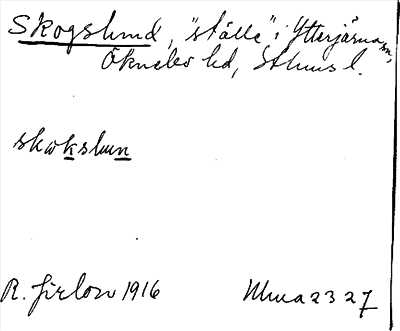 Skogslund, "ställe" i Ytterjärna sn,
Öknebo hd, Sthms l.
skωkslun
R. Jirlow 1916
Uma 2327